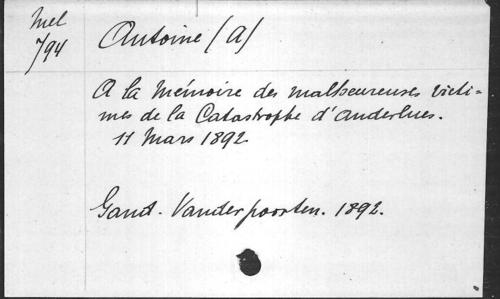 Mel
794
Antoine (A)
A la Mémoire des malheureuses victi=
mes de la Catastrophe d'Anderlues.
11 Mars 1892
Gand. Vanderpoorten. 1892.